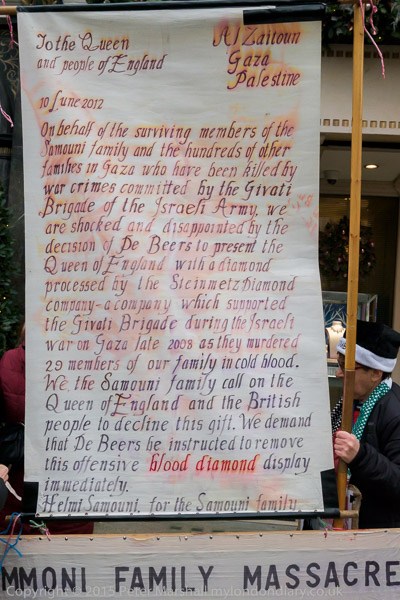 To the Queen
and people of England
Al Zaitoun
Gaza
Palestine
10 June 2012
On behalf of the surviving members of the
Samouni family and the hundreds of other
families in Gaza who have been killed by
war crimes committed by the Givati
Brigade of the Israeli Army, we
are shocked and disappointed by the
decision of De Beers to present the
Queen of England with a diamond
processed by the Steinmetz Diamond
company-a company which supported
the Givati Brigade during the Israeli
war on Gaza late 2008 as they murdered
29 members of our family in cold blood.
We, the Samouni family call on the
Queen of England and the British
people to decline this gift. We demand
that De Beers be instructed to remove
this offensive blood diamond display
immediately.
Helmi Samouni, for the Samouni family
MMONI FAMILY MASSACRE
Copyright © 2013 Peter Marshall mylondondiary.co.uk